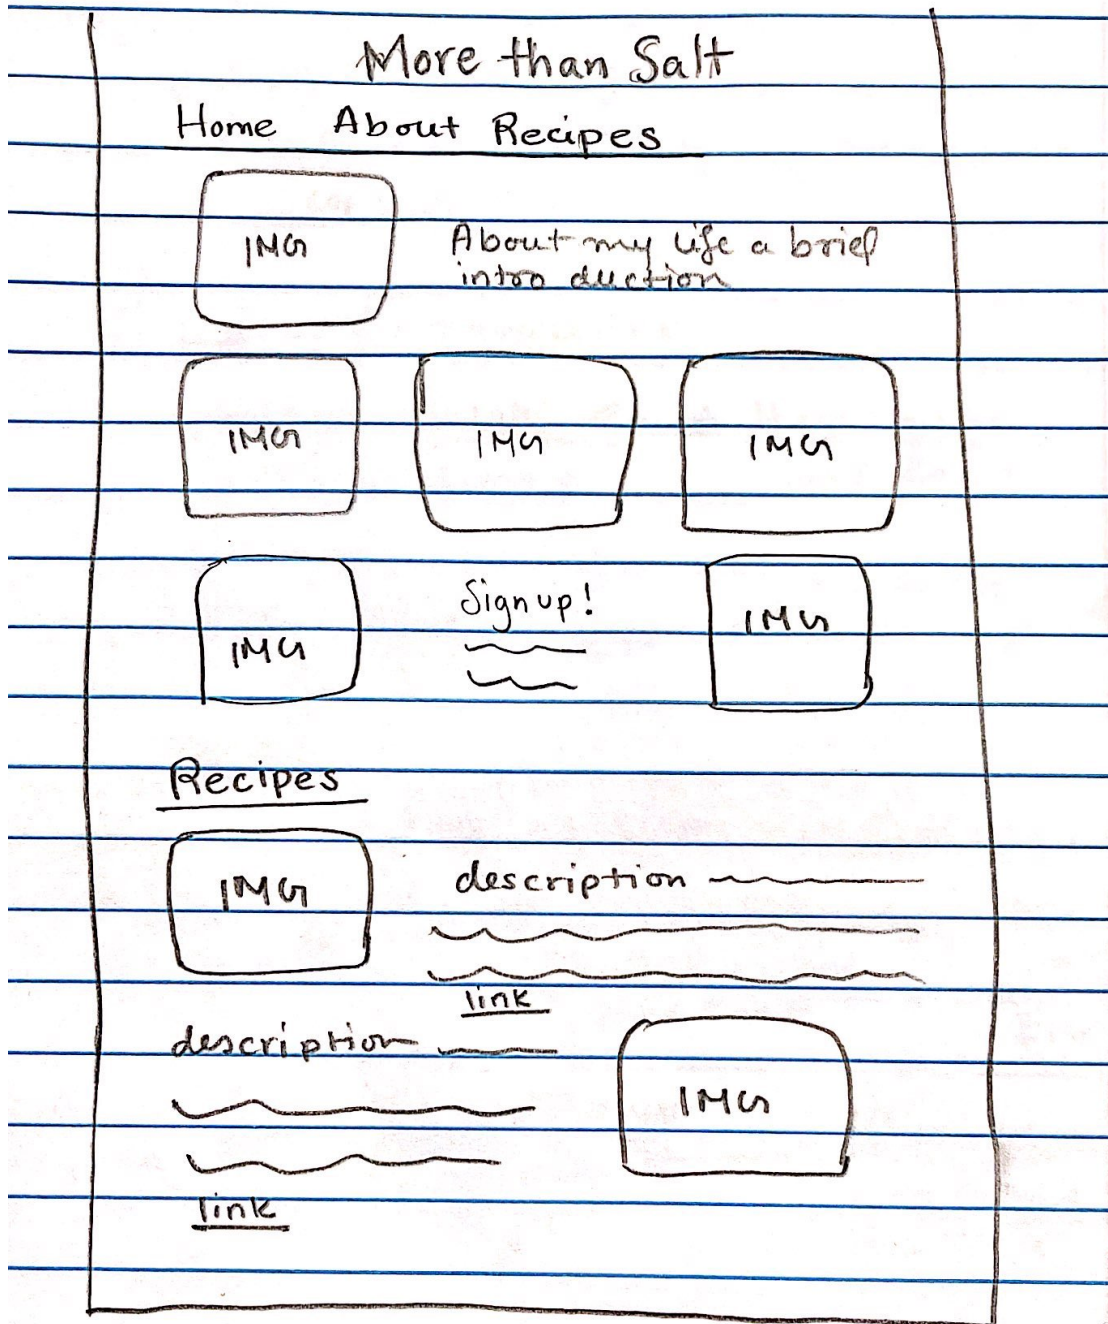 More than Salt
Home About Recipes
IMG
About my life a brief
introduction
IMG IMG IMG
IMG
Sign up!
IMG
Recipes
IMG
description
link
description
IMG
link